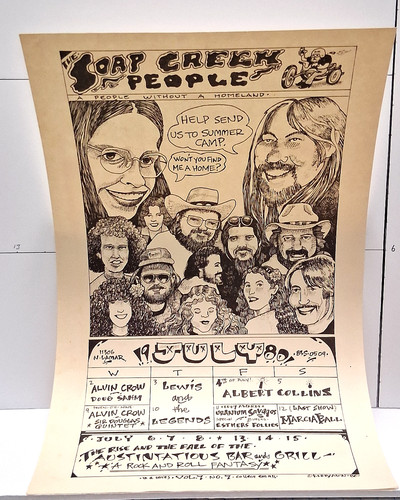 THE
SOAP CREEK
PEOPLE
A PEOPLE WITHOUT A HOMELAND.
HELP SEND
US TO SUMMER
CAMP.
WON'T YOU FIND
ME A HOME?
11306
N. LAMAR
19 JULY 80
835-0509
W T F S
2 ALVIN CROW
DOUG SAHM
3 LEWIS
and the
LEGENDS
4 5
ALBERT COLLINS
9
ALVIN CROW
SIR DOUGLAS
QUINTET
10
11
URANIUM SAVAGES
ESTHERS FOLLIES
12 (LAST SHOW)
MARCIA BALL
JULY 6 • 7 • 8 • 13 • 14 • 15 •
THE RISE AND THE FALL OF THE
AUSTINTATIOUS BAR and GRILL
A ROCK AND ROLL FANTASY
VOL. 7 NO. 7